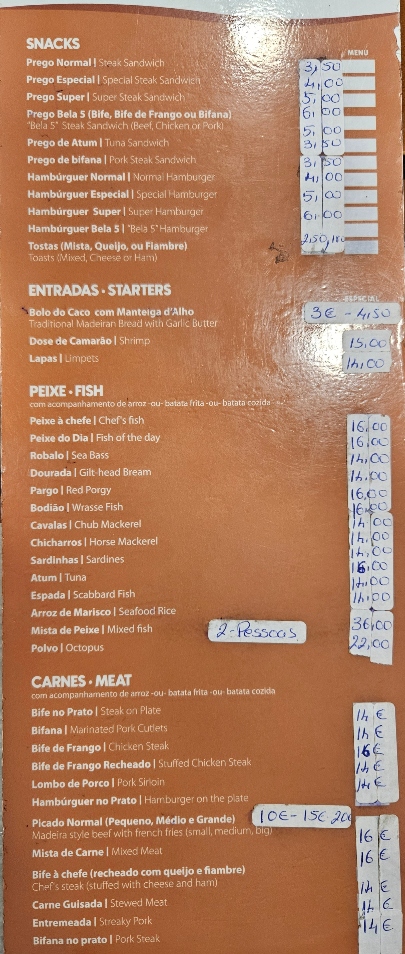 SNACKS
MENU
Prego Normal | Steak Sandwich 3,50
Prego Especial | Special Steak Sandwich 4,00
Prego Super | Super Steak Sandwich 5,00
Prego Bela 5 (Bife, Bife de Frango ou Bifana) 6,00
"Bela 5" Steak Sandwich (Beef, Chicken or Pork) 5,00
Prego de Atum | Tuna Sandwich 3,50
Prego de bifana | Pork Steak Sandwich 3,50
Hambúrguer Normal | Normal Hamburger 4,00
Hambúrguer Especial | Special Hamburger 5,00
Hambúrguer Super | Super Hamburger 6,00
Hambúrguer Bela 5 | "Bela 5" Hamburger
Tostas (Mista, Queijo, ou Fiambre) 2,50
Toasts (Mixed, Cheese or Ham)
ENTRADAS • STARTERS
ESPECIAL
Bolo do Caco com Manteiga d'Alho 3€ - 4,50
Traditional Madeiran Bread with Garlic Butter
Dose de Camarão | Shrimp 15,00
Lapas | Limpets 14,00
PEIXE • FISH
com acompanhamento de arroz -ou- batata frita -ou- batata cozida
Peixe à chefe | Chef's fish 16,00
Peixe do Dia | Fish of the day 16,00
Robalo | Sea Bass 14,00
Dourada | Gilt-head Bream 14,00
Pargo | Red Porgy 16,00
Bodião | Wrasse Fish 16,00
Cavalas | Chub Mackerel 14,00
Chicharros | Horse Mackerel 14,00
Sardinhas | Sardines 14,00
Atum | Tuna 16,00
Espada | Scabbard Fish 14,00
Arroz de Marisco | Seafood Rice 14,00
Mista de Peixe | Mixed fish 2-Pessoas 36,00
Polvo | Octopus 22,00
CARNES • MEAT
com acompanhamento de arroz -ou- batata frita -ou- batata cozida
Bife no Prato | Steak on Plate 14 €
Bifana | Marinated Pork Cutlets 14 €
Bife de Frango | Chicken Steak 16 €
Bife de Frango Recheado | Stuffed Chicken Steak 14 €
Lombo de Porco | Pork Sirloin 14 €
Hambúrguer no Prato | Hamburger on the plate
Picado Normal (Pequeno, Médio e Grande) 10€ - 15€ 20€
Madeira style beef with french fries (small, medium, big) 16 €
Mista de Carne | Mixed Meat 16 €
Bife à chefe (recheado com queijo e fiambre)
Chef's steak (stuffed with cheese and ham) 14 €
Carne Guisada | Stewed Meat 14 €
Entremeada | Streaky Pork 14 €
Bifana no prato | Pork Steak